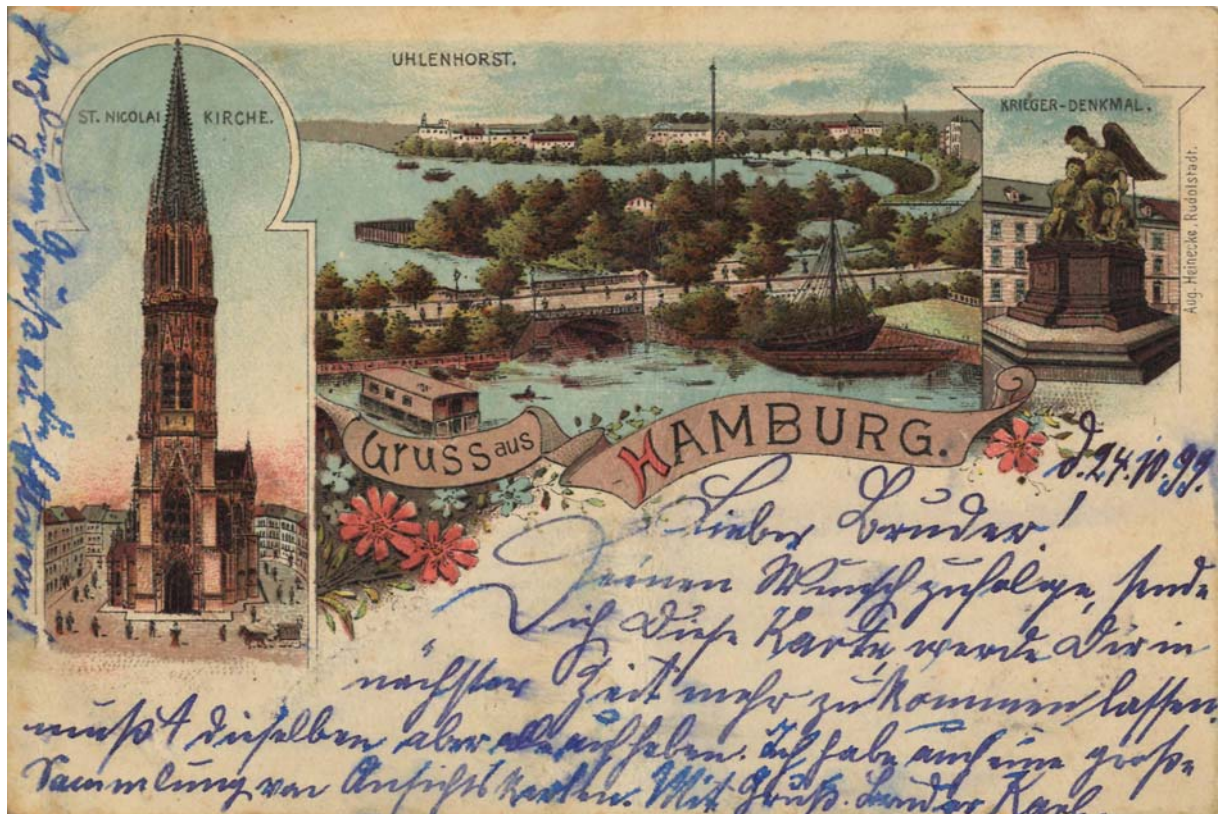 UHLENHORST.
ST. NICOLAI KIRCHE.
KRIEGER-DENKMAL.
Aug. Heinecke, Rudolstadt.
Gruss aus HAMBURG.
d. 24.10.99.
Lieber Bruder!
Deinen Wunsch zufolge, sende
Dich diese Karte, werde Dir in
nächster Zeit mehr zukommen lassen,
mußt dieselben aber alle aufheben. Ich habe auch eine große
Sammlung von Ansichtskarten. Mit Gruß. Bruder Karl.